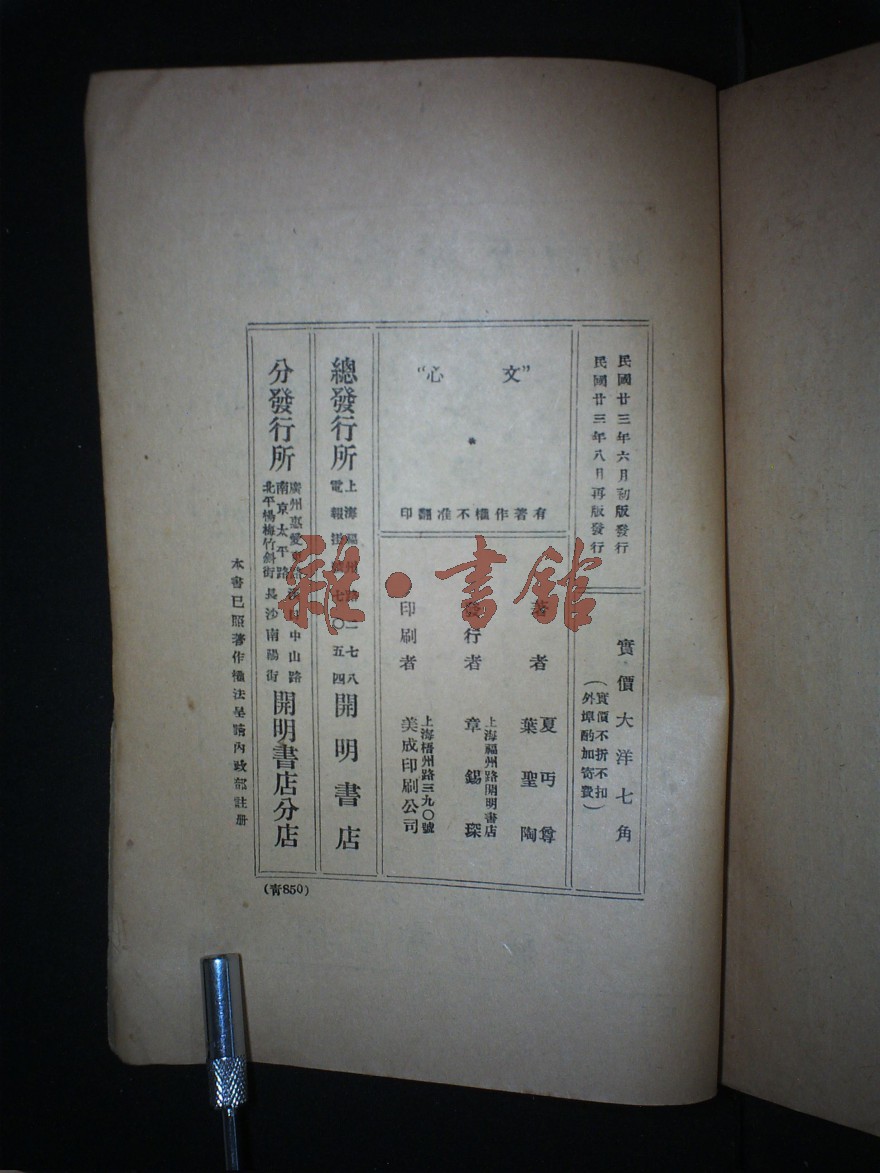 民國廿三年六月初版發行
民國廿三年八月再版發行
實價大洋七角
（實價不折不扣
外埠酌加寄費）
“文心”
有著作權不准翻印
著者
夏丏尊
葉聖陶
發行者
上海福州路開明書店
章錫琛
印刷者
上海梧州路三九〇號
美成印刷公司
總發行所
上海福州路二七八
電報掛號七〇五四
開明書店
分發行所
廣州惠愛東路 漢口中山路
南京太平路
北平楊梅竹斜街 長沙南陽街
開明書店分店
本書已照著作權法呈請內政部註册
（青850）
雜·書館